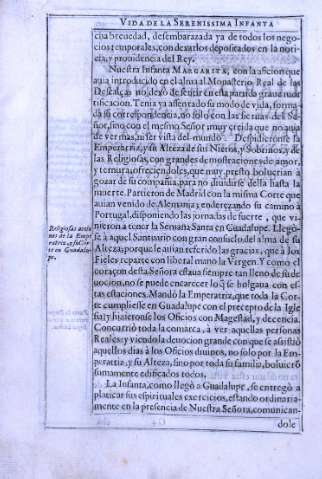 VIDA DE LA SERENISSIMA INFANTA
cha breuedad, desembarazada ya de todos los negocios
temporales, con dexarlos depositados en la noticia,
y prouidencia del Rey.
Nuestra Infanta MARGARITA, con la aficion que
auia introducido en el alma al Monasterio Real de las
Descalças no dexò de sentir en esta partida graue mortificacion.
Tenia ya assentado su modo de vida, formada
su correspondencia, no solo con las sieruas del Señor,
sino con el mesmo Señor muy trillada que no auia
de ver mas, ni ser vista del mundo. Despidieronse la
Emperatriz, y su Alteza de sus Nietos, y Sobrinos, y de
las Religiosas, con grandes demostraciones de amor,
y ternura, ofreciendoles, que muy presto boluerian a
gozar de su compañia, para no diuidirse della hasta la
muerte. Partieron de Madrid con la misma Corte que
auian venido de Alemania, y endereçando su camino a
Portugal, disponiendo las jornadas de suerte, que vinieron
a tener la Semana Santa en Guadalupe. Llegose
à aquel Santuario con gran consuelo del alma de su
Alteza; porque le auian referido las gracias, que à los
Fieles reparte con liberal mano la Virgen. Y como el
coraçon desta Señora estaua siempre tan lleno de su deuocion,
no se puede encarecer lo q̃ se holgaua con estas
estaciones. Mandò la Emperatriz, que toda la Corte
cumpliesse en Guadalupe con el precepto de la Iglesia,
y se hiziessen los Oficios con Magestad, y decencia.
Concurriò toda la comarca, à ver aquellas personas
Reales: y viendo la deuocion grande con que se assistiò
aquellos dias à los Oficios diuinos, no solo por la Emperatriz,
y su Alteza, sino por toda su familia, boluierõ
sumamente edificados todos.
La Infanta, como llegò a Guadalupe, se entregò a
platicar sus espirituales exercicios, estando ordinariamente
en la presencia de Nuestra Señora, comunican-
dole
Religiosas acciones
de la Emperatriz,
y su
en Guadalupe.